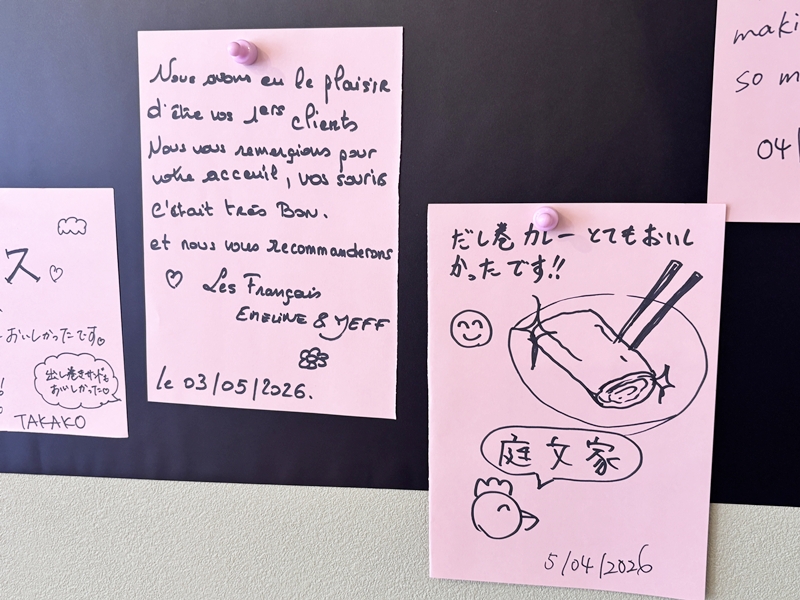 ス♡
おいしかったです♡
出し巻きサンドも
おいしかった♡
TAKAKO
Nous avons eu le plaisir
d'être vos 1ers clients
Nous vous remergions pour
votre acceuil, vos souris
C'était très Bon.
et nous vous recommanderons
♡ Les Français
EMELINE & JEFF
le 03/05/2026.
だし巻カレーとてもおいし
かったです!!
庭文家
5/04/2026
maki
so m
04/